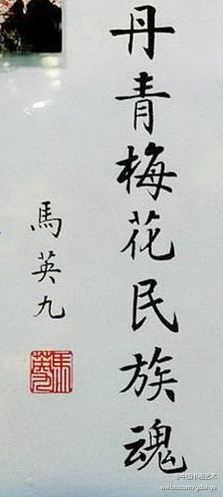 丹青梅花民族魂
馬英九
weibo.com/gdshys